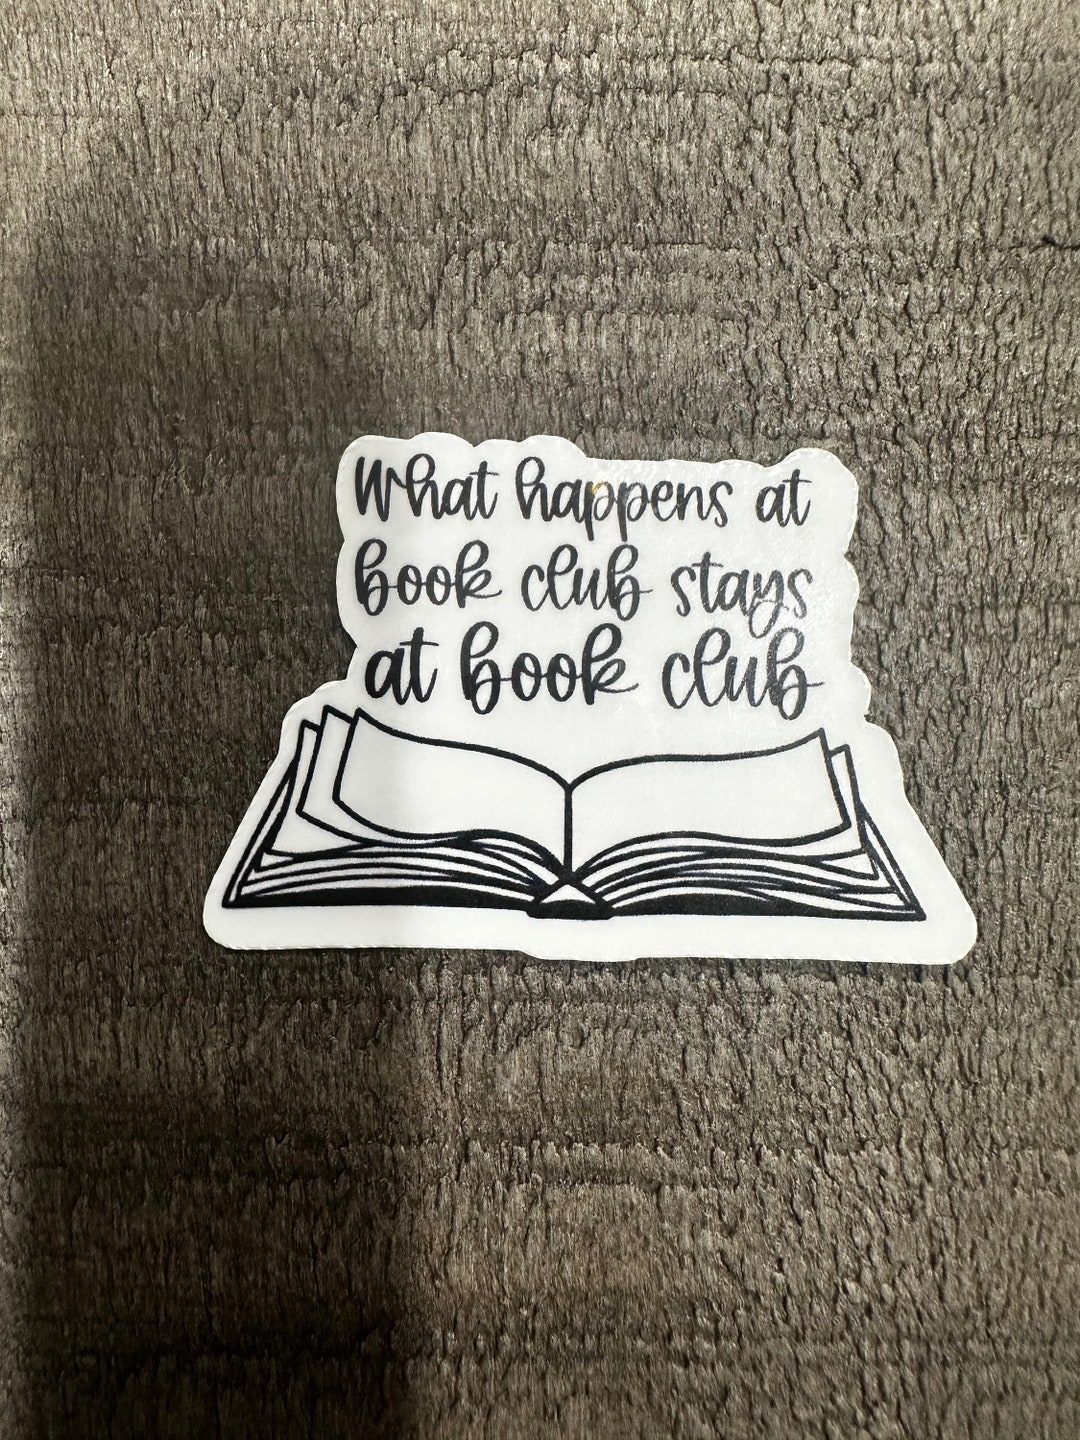 What happens at
book club stays
at book club